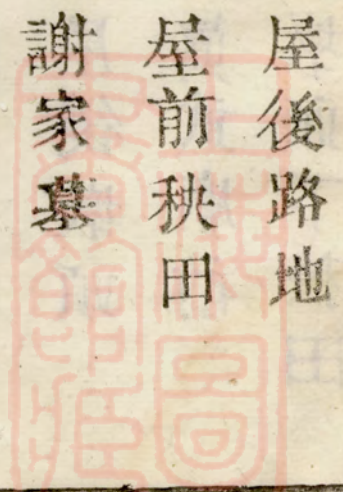 屋後路地
屋前秧田
謝家墓